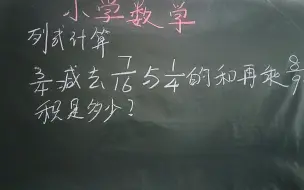 小学数学
列式计算
3/4减去7/16与1/4的和再乘8/9
积是多少？